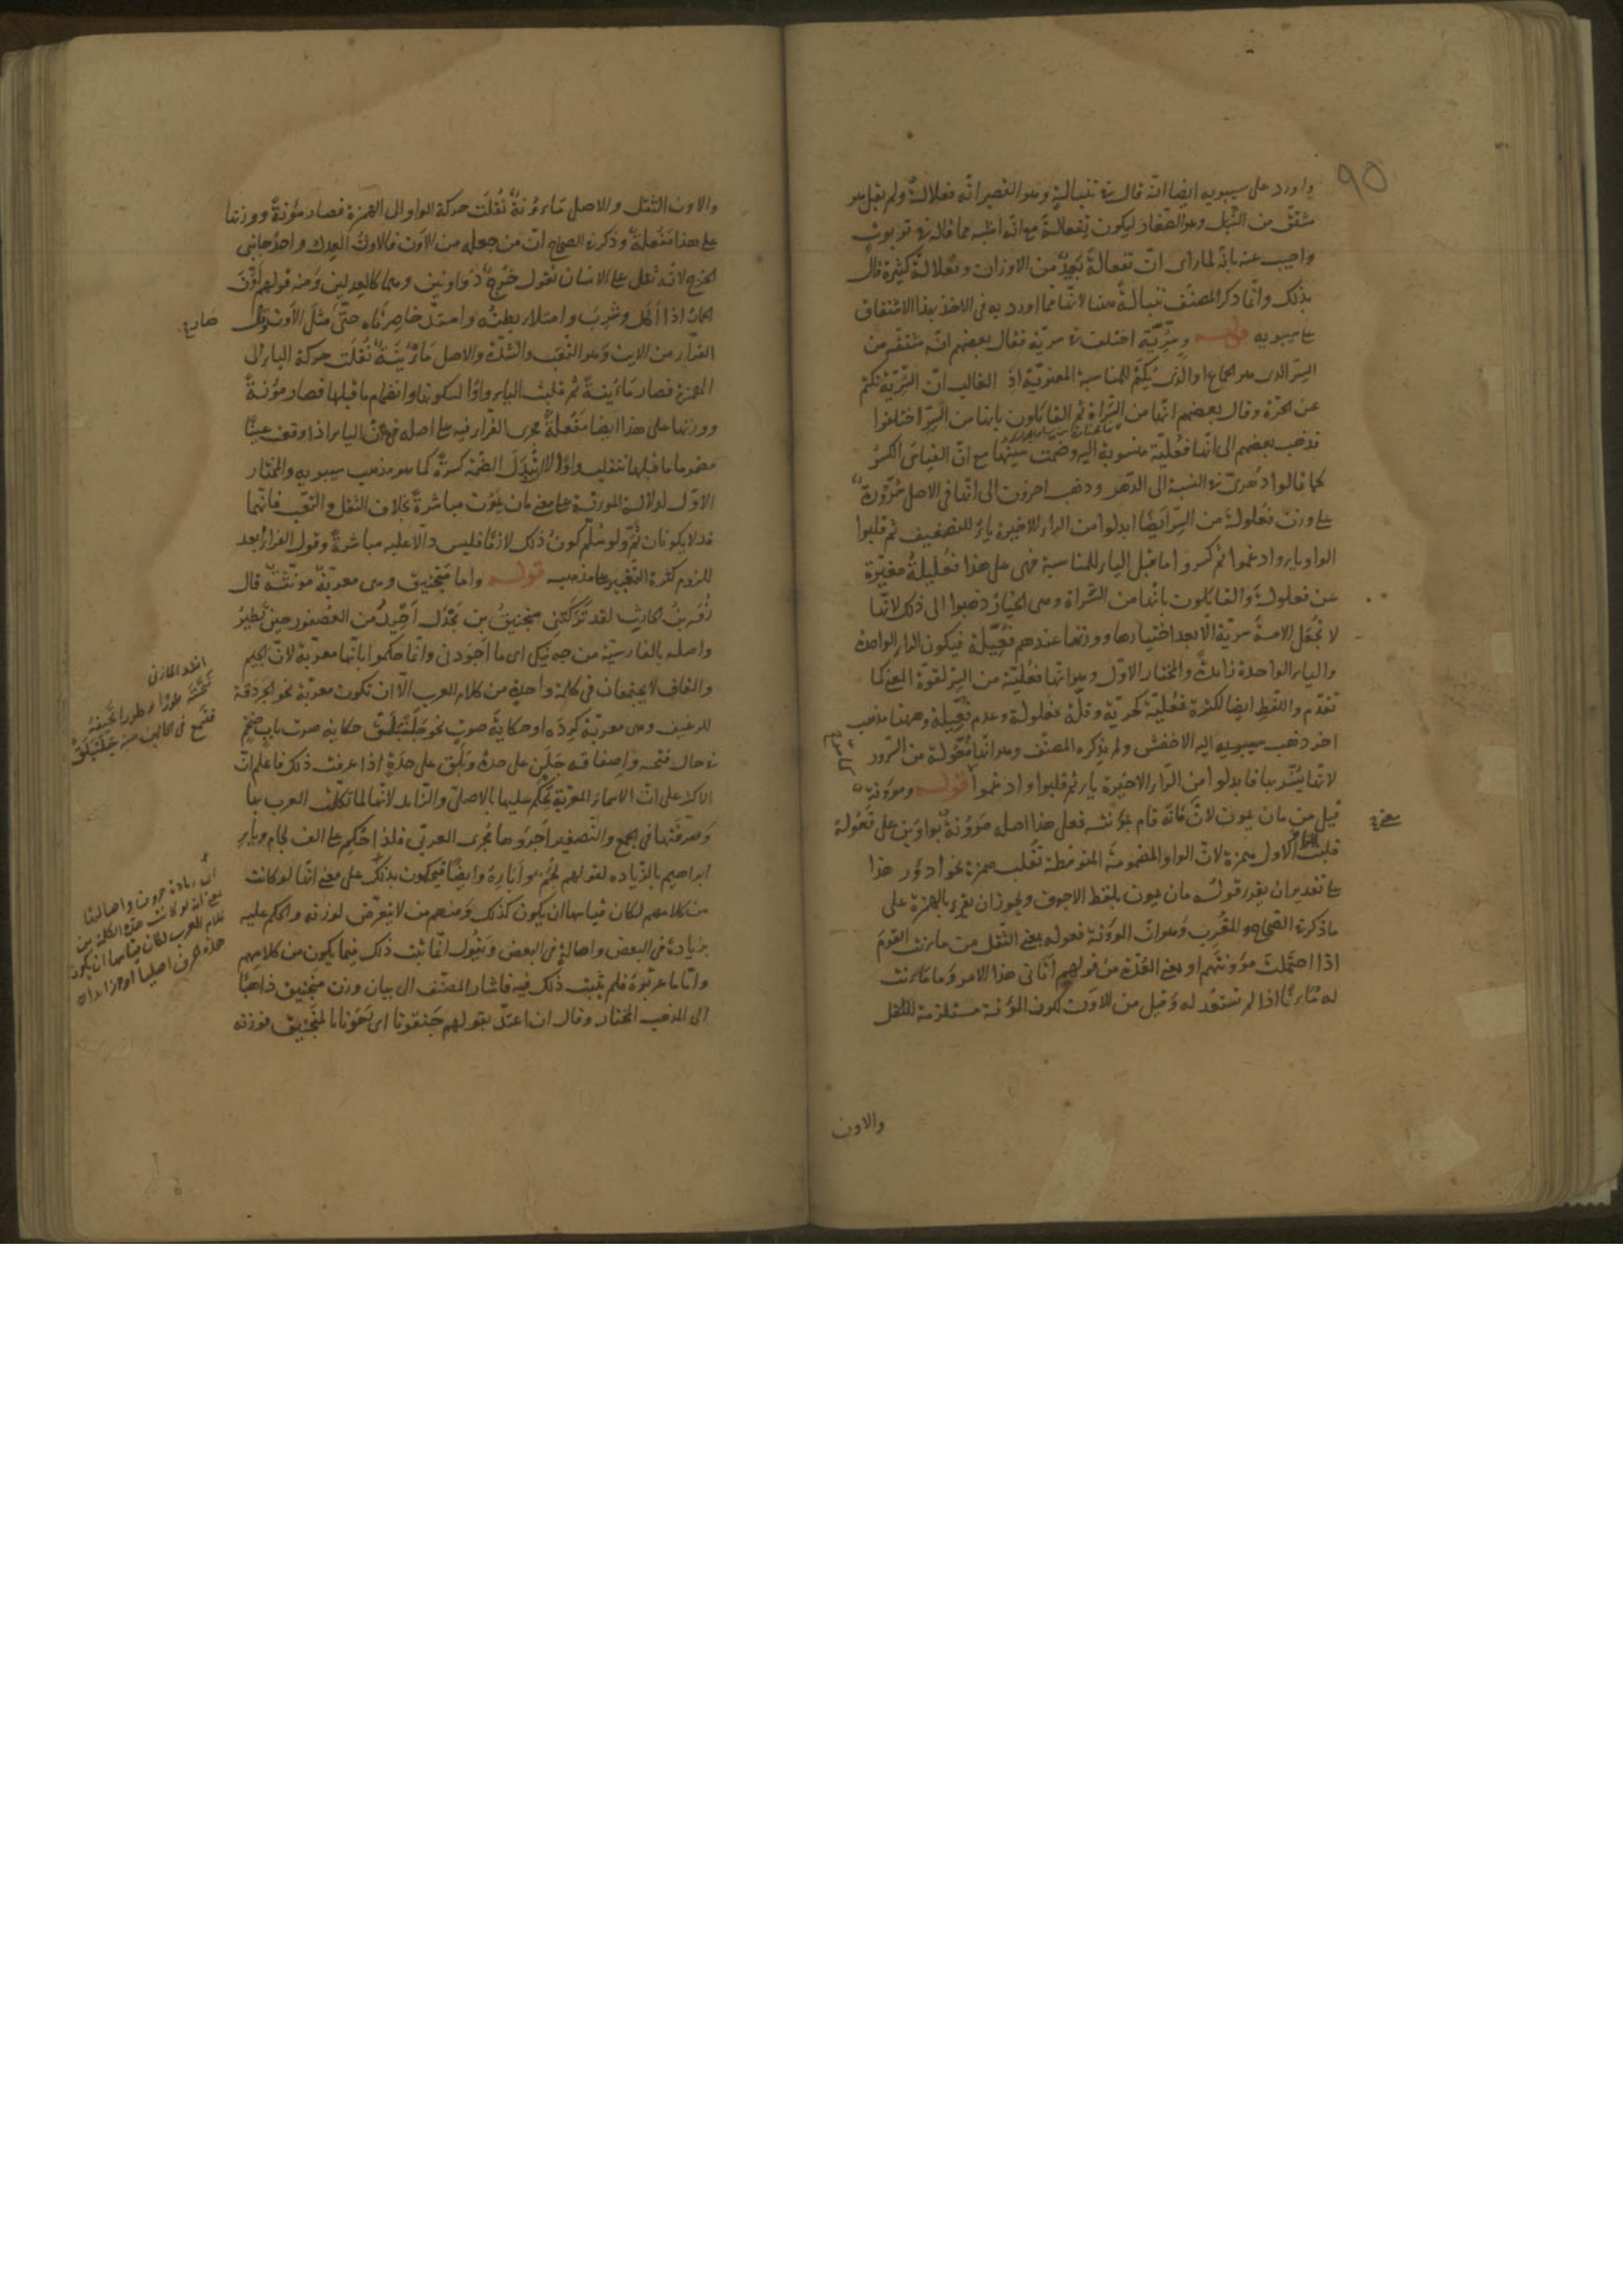 ٩٥
واورد على سيبويه ايضا انه قال في تنبالة وهو القصير انه فعلالة ولم يقل هو
مشتق من النبل وهو الصغار ليكون تفعالة مع انه اشبه مما قاله في تربوت
واجيب عنه بانه لما راى ان تفعالة بعيد من الاوزان وفعلالة كثيرة قال
بذلك وانما ذكر المصنف تنبالة هنا لانها مما اورد به فى الاخذ بهذا الاشتقاق
على سيبويه قوله وسُرِّيّة اختلف في سرية فقال بعضهم انه مشتقة من
السر الذى هو الجماع او الذى يكتم للمناسبة المعنوية اذ الغالب ان السرية تكتم
عن الحرة وقال بعضهم انها من السراة ثم القائلون بانها من السر اختلفوا
فذهب بعضهم الى انها فعلية منسوبة اليه وضمت سينها مع ان القياس الكسر
كما قالوا دهرى في النسبة الى الدهر وذهب اخرون الى انها فى الاصل سُرُّورة
على وزن فعلولة من السر ايضا ابدلوا من الراء الاخيرة ياء للتضعيف ثم قلبوا
الواو ياء وادغموا ثم كسروا ما قبل الياء للمناسبة فهى على هذا فعليلة مغيرة
عن فعلولة والقائلون بانها من السراة وهى الخيار ذهبوا الى ذلك لانها
لا تجعل الامة سرية الا بعد اختيارها ووزنها عندهم فعيلة فيكون الراء الواحدة
والياء الواحدة زائدة والمختار الاول وهو انها فعلية من السر لقوة المعنى كما
تقدم واللفظ ايضا لكثرة فعلية كحرية وقلة فعلولة وعدم فعيلة وههنا مذهب
اخر ذهب سيبويه اليه الاخفش ولم يذكره المصنف وهو انها فعولة من السرور
لانها يُسَرّ بها فابدلوا من الراء الاخيرة ياء ثم قلبوا وادغموا قوله ومؤونة
قيل من مان يمون لانه كانه قام بمؤنته فعلى هذا اصله موونة بواوين على فعولة
قلبت الواو الاول همزة لان الواو المضمومة المتوسطة تقلب همزة نحو ادؤر هذا
على تقدير ان يقرر قوله مان يمون بلفظ الاجوف ويجوز ان يقرء بالهمزة على
ما ذكر في الصحاح والمقرب وهو ان المؤونة فعولة بمعنى الثقل من مانت القوم
اذا احتملت مؤونتهم او بمعنى العدة من قولهم اتانى هذا الامر وما مأنت
له مأنا اذا لم تستعد له وقيل من الاون لكون المؤنة مستلزمة للثقل
والاون
والاون الثقل والاصل مَأْوُنَة نقلت حركة الواو الى الهمزة فصار مؤنة ووزنها
على هذا مَفْعُلة وذكر في الصحاح ان من جعله من الاون فالاون العدل واحد جانبى
الخرج لانه ثقل على الانسان تقول خرج ذو اونين وهما كالعدلين ومنه قولهم اوّن
الحمار اذا اكل وشرب وامتلاء بطنه وامتد خاصرتاه حتى مثل الاون وقال
الفراء من الاين وهو التعب والشدة والاصل مَأْيُنَة نقلت حركة الياء الى
الهمزة فصار مأُينة ثم قلبت الياء واوا لسكونها وانضمام ما قبلها فصار مؤنة
ووزنها على هذا ايضا مفعلة جرى الفراء فيه على اصله فى ان الياء اذا وقعت عينًا
مضموما ما قبلها تنقلب واوًا لا ان تبدل الضمة كسرة كما هو مذهب سيبويه والمختار
الاول لدلالة المؤنة على معنى مان يمون مباشرة بخلاف الثقل والتعب فانهما
قد لا يكونان ثم ولو سلم كون ذلك لازما فليس دالا عليه مباشرة وقول الفراء ابعد
للزوم كثرة التغيير على مذهبه قوله واما منجنيق وهى معربة مونثة قال
زفر بن الحارث لقد تركتنى منجنيق بن بحدل احيد من العصفور حين يطير
واصله بالفارسية من جه نيكى اى ما اجودنى وانما حكموا بانها معربة لان الجيم
والقاف لا يجتمعان فى كلمة واحدة من كلام العرب الا ان تكون معربة نحو الجردقة
للرغيف وهى معربة كرده او حكاية صوت نحو جلنبلق حكاية صوت باب ضخم
في حال فتحه واصفاقه جلن على حدة وبلق على حدة اذا عرفت ذلك فاعلم ان
الاكثر على ان الاسماء المعربة يحكم عليها بالاصلى والزايد لانها لما تكلمت العرب بها
وصرفتها فى الجمع والتصغير اجروها مجرى العربى فلذا احكم على الف لجام وياء
ابراهيم بالزياده لقولهم لجم وابارة وايضا فيحكمون بذلك على معنى انها لو كانت
من كلامهم لكان قياسها ان يكون كذلك ومنهم من لا يتعرض لوزنه والحكم عليه
بزيادة فى البعض واصالة فى البعض ويقول انما ثبت ذلك فيما يكون من كلامهم
واما ما عربوه فلم يثبت ذلك فيه فاشار المصنف الى بيان وزن منجنيق ذاهبًا
الى المذهب المختار وقال ان اعتد بقولهم جنقونا اى رمونا بالمنجنيق فوزنه
انشد المازنى
فتفتحه طورا وطورا تجيفه
فتسمع فى الحالين منه جلنبلق
اى زيادة حروف واصالتها
يعنى انه لو كانت هذه الكلمة من
كلام العرب لكان قياسها ان يكون
هذه الحرف اصليا او زايدا